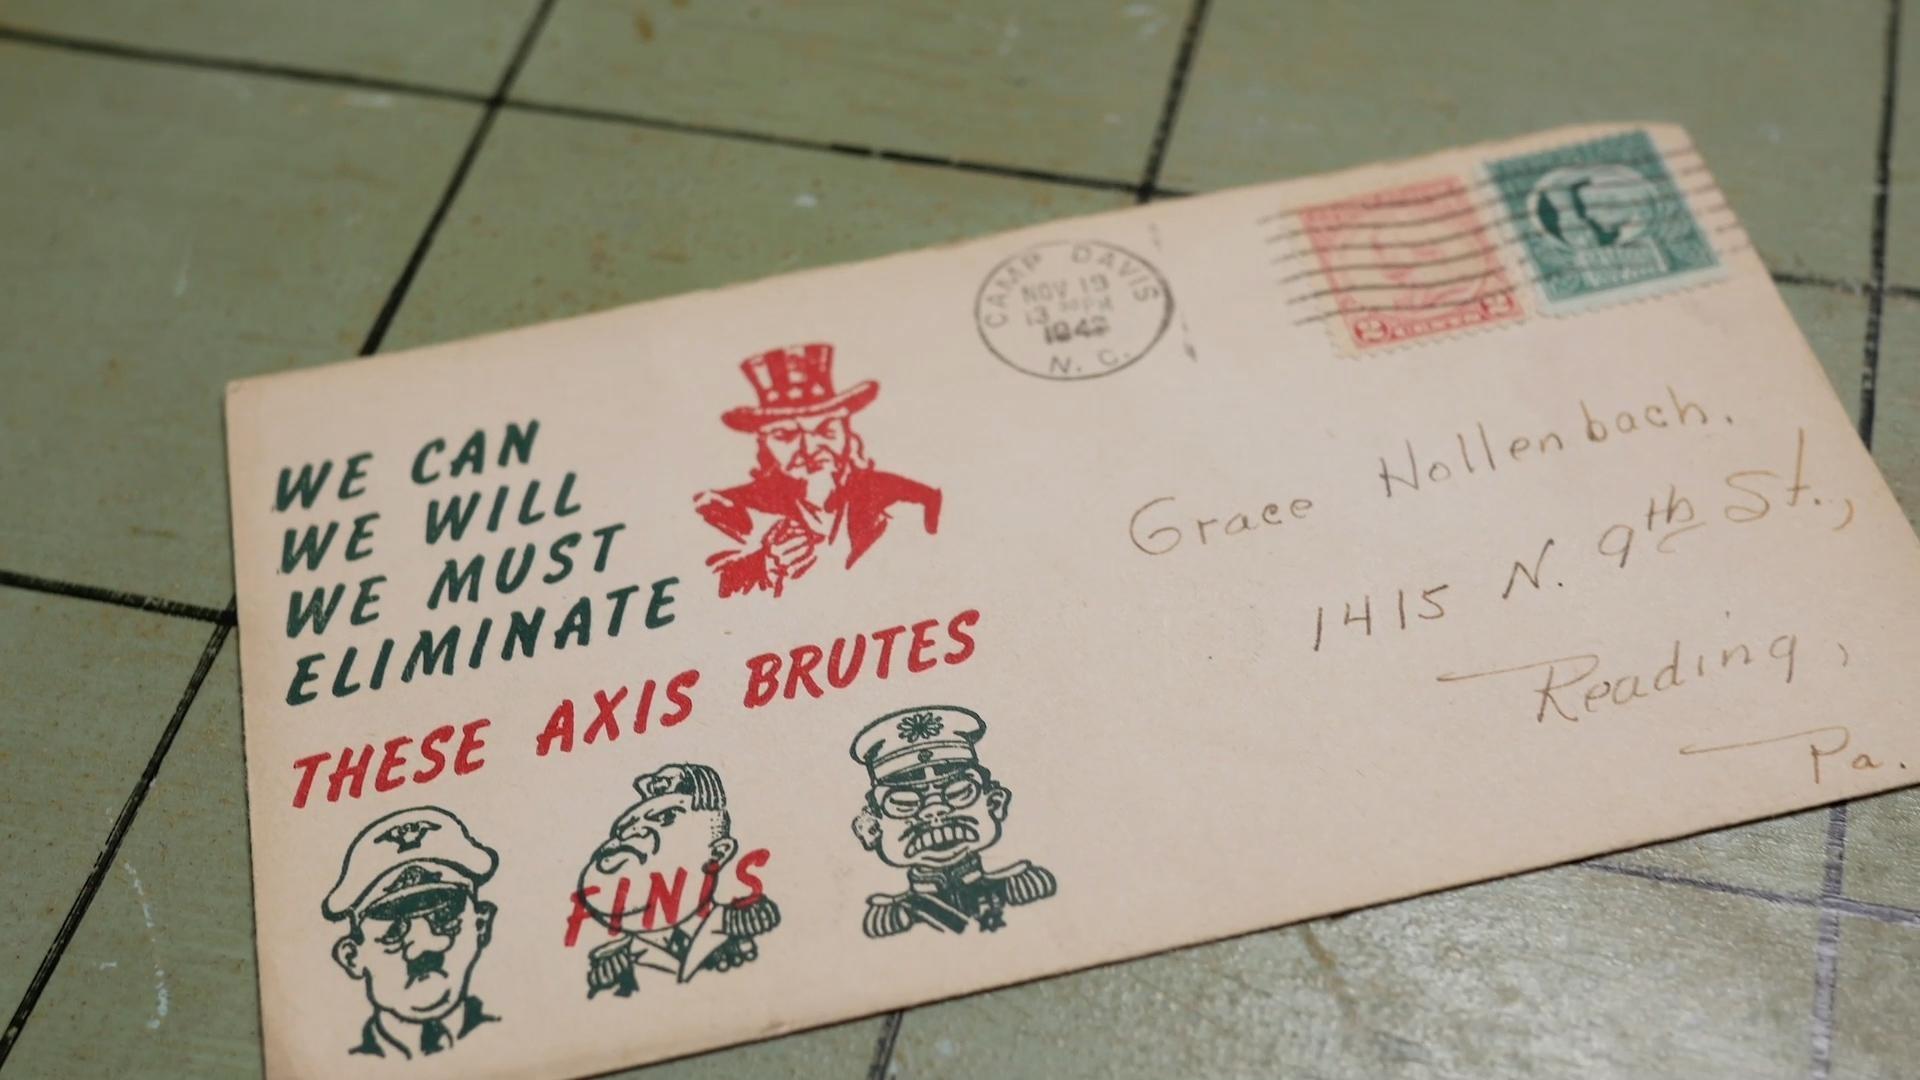 WE CAN
WE WILL
WE MUST
ELIMINATE
THESE AXIS BRUTES
FINIS
CAMP DAVIS
NOV 19
13
N. C.
2 2
Grace Hollenbach.
1415 N. 9th St.,
Reading,
Pa.